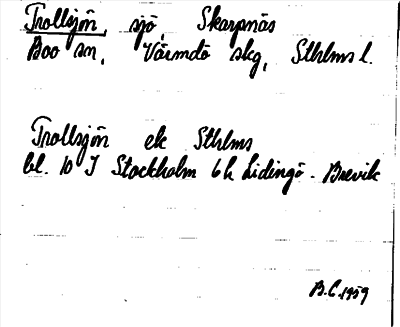 Trollsjön, sjö, Skarpnäs
Boo sn, Värmdö skg, Sthlms l.
Trollsjön ek Sthlms
bl. 10 I Stockholm 6h Lidingö - Brevik
B.C. 1959